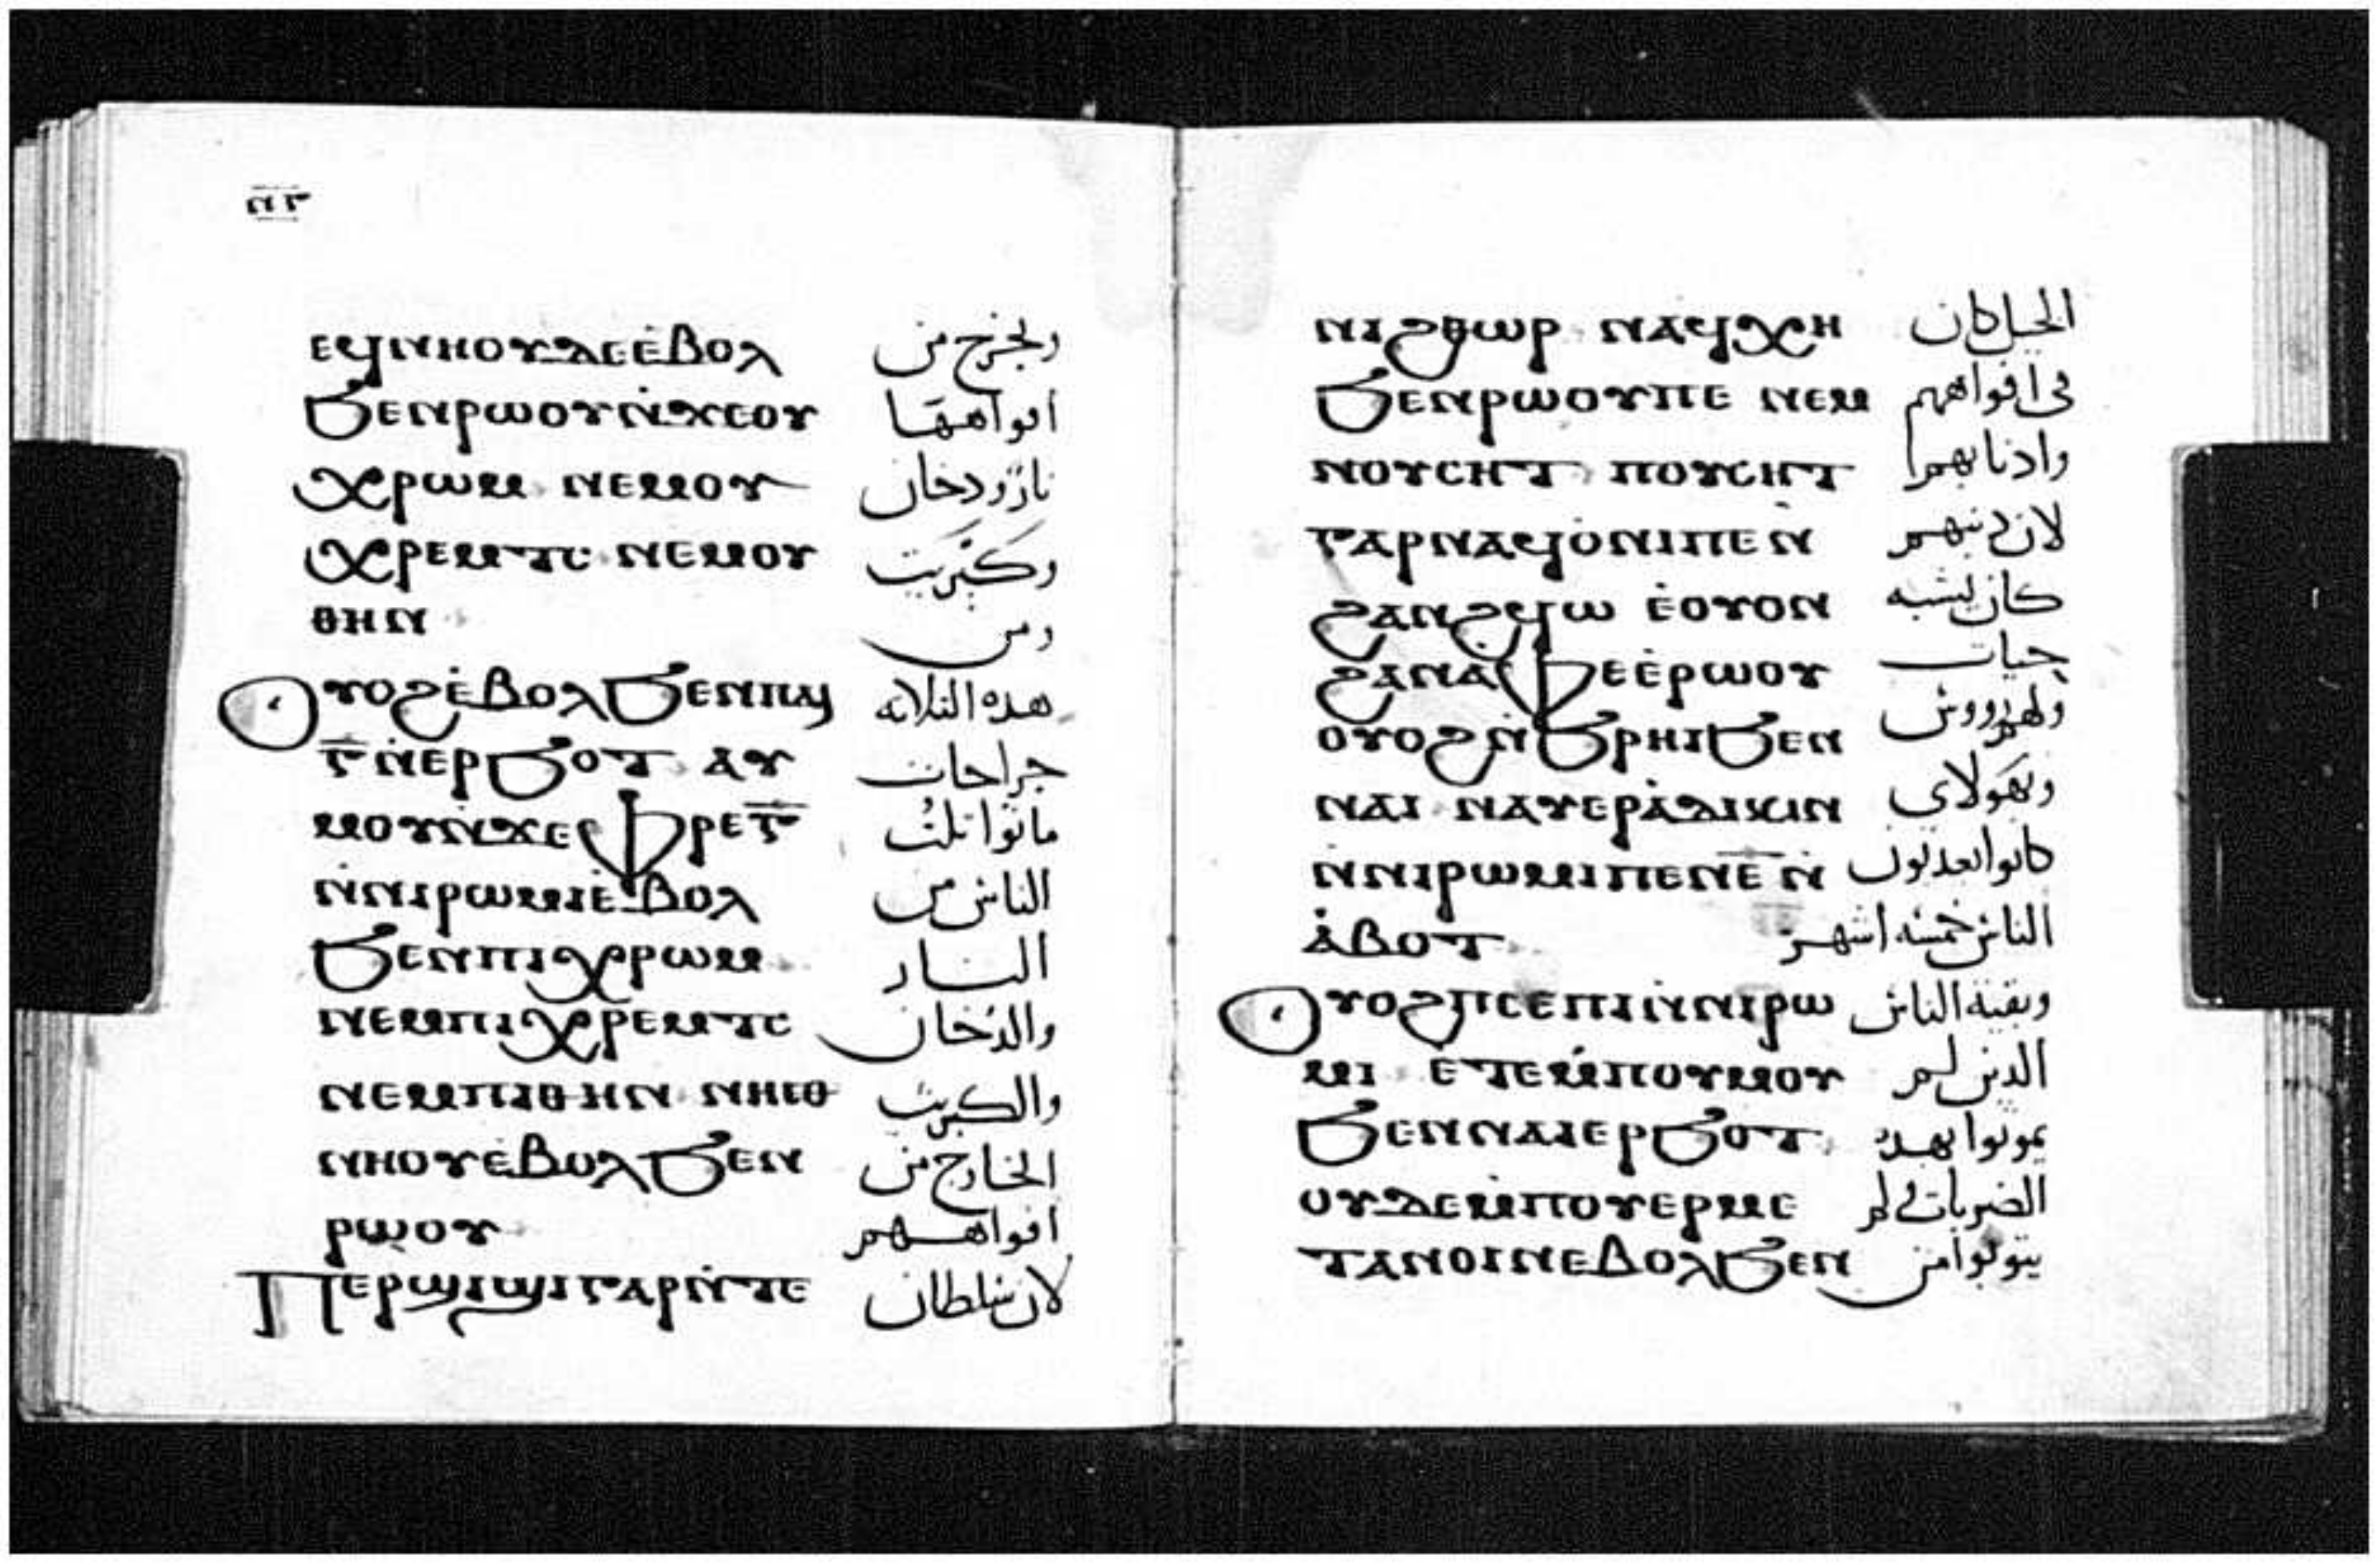 ⲛⲅ
ⲉϥⲛⲏⲟⲩⲇⲉⲉ̀ⲃⲟⲗ ويخرج من
ϧⲉⲛⲣⲱⲟⲩⲛ̀ϫⲉⲟⲩ افواهها
ⲭⲣⲱⲙ ⲛⲉⲙⲟⲩ نار ودخان
ⲭⲣⲉⲙⲧⲥ ⲛⲉⲙⲟⲩ وكبريت
ⲑⲏⲛ ومن
ⲟⲩⲟϩⲉ̀ⲃⲟⲗϧⲉⲛⲡⲁⲓ هده الثلاثه
ⲅ̅ⲛ̀ⲉⲣϧⲟⲧ ⲁⲩ جراحات
ⲙⲟⲩⲛ̀ϫⲉⲫⲣⲉⲅ̅ ماتوا ثلث
ⲛ̀ⲛⲓⲣⲱⲙⲓⲉ̀ⲃⲟⲗ الناس من
ϧⲉⲛⲡⲓⲭⲣⲱⲙ النار
ⲛⲉⲙⲡⲓⲭⲣⲉⲙⲧⲥ والدخان
ⲛⲉⲙⲡⲓⲑⲏⲛ ⲛⲏⲉⲑ والكبريت
ⲛⲏⲟⲩⲉ̀ⲃⲟⲗϧⲉⲛ الخارج من
ⲣⲱⲟⲩ افواههم
Ⲡⲉⲣϣⲓϣⲓⲅⲁⲣⲛ̀ⲧⲉ لان سلطان
ⲛⲓϩⲑⲱⲣ ⲛⲁϥⲭⲏ الخيل كان
ϧⲉⲛⲣⲱⲟⲩⲡⲉ ⲛⲉⲙ فى افواههم
ⲛⲟⲩⲥⲏⲧ ⲛⲟⲩⲥⲏⲧ وادنابهم
ⲅⲁⲣⲛⲁϥⲟ̀ⲛⲓⲡⲉⲛ̀ لان دنبهم
ϩⲁⲛϩϥⲱ ⲉ̀ⲟⲩⲟⲛ كان يشبه
ϩⲁⲛⲁⲫⲉⲉ̀ⲣⲱⲟⲩ حيات
ⲟⲩⲟϩⲛ̀ϧⲣⲏⲓϧⲉⲛ ولهم رووس
ⲛⲁⲓ ⲛⲁⲩⲉⲣⲁ̀ⲇⲓⲕⲓⲛ وبهولاى
ⲛ̀ⲛⲓⲣⲱⲙⲓⲡⲉⲛⲉ̅ⲛ̀ كانوا يعدبون
ⲁ̀ⲃⲟⲧ الناس خمسه اشهر
ⲟⲩⲟϩⲡⲥⲉⲡⲓⲛ̀ⲛⲓⲣⲱ وبقية الناس
ⲙⲓ ⲉ̀ⲧⲉⲙ̀ⲡⲟⲩⲙⲟⲩ الدين لم
ϧⲉⲛⲛⲁⲓⲉⲣϧⲟⲧ يموتوا بهده
ⲟⲩⲇⲉⲙ̀ⲡⲟⲩⲉⲣⲙⲉ الضربات ولم
ⲧⲁⲛⲟⲓⲛⲉⲃⲟⲗϧⲉⲛ يتوبوا من